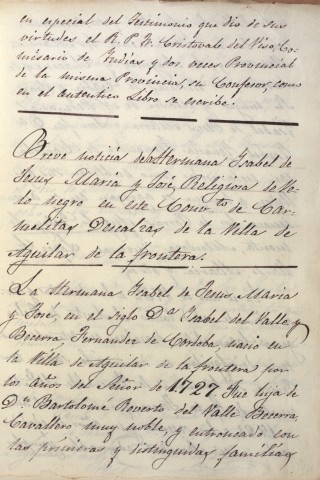 en especial del Testimonio que dio de sus
virtudes el R. P. Fr. Cristoval del Viso, Co-
misario de Yndias y dos veces Provincial
de la misma Provincia, su Confesor, como
en el autentico Libro se escribe.
Breve noticia de la Hermana Ysabel de
Jesus Maria y José, Religiosa de Ve-
lo negro en este Conv.to de Car-
melitas Descalzas de la Villa de
Aguilar de la frontera.
La Hermana Ysabel de Jesus Maria
y José, en el siglo D.a Ysabel del Valle y
Becerra, Fernandez de Cordoba, nacio en
la Villa de Aguilar de la frontera por
los años del Señor de 1727. Fue hija de
D.n Bartolomé Roverto del Valle Becerra,
Cavallero muy noble, y entroncado con
las primeras y distinguidas familias